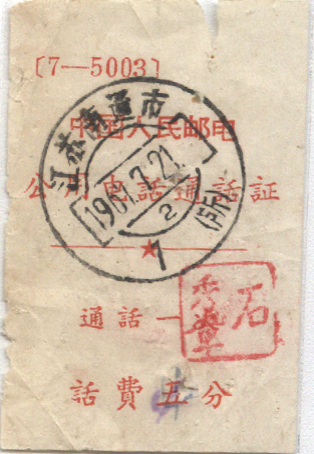 〔7—5003〕
中国人民邮电
江苏南通市
公用电話通話証
2
(所)
7
★
通話一
石
話費五分